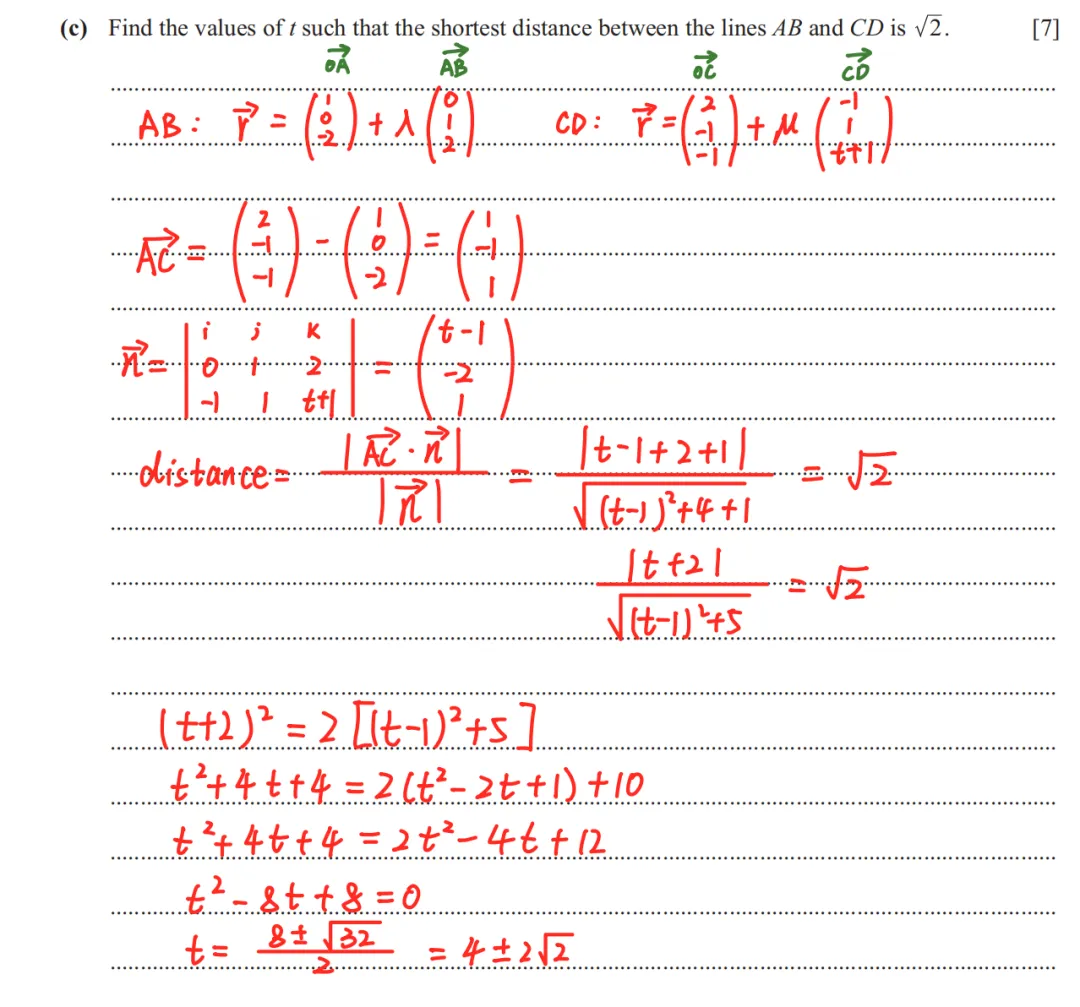 (c) Find the values of t such that the shortest distance between the lines AB and CD is √2. [7]
→OA →AB →OC →CD
AB: →r = (1 0 -2) + λ (0 1 2) CD: →r = (2 -1 -1) + μ (-1 1 t+1)
→AC = (2 -1 -1) - (1 0 -2) = (1 -1 1)
→n = |i j k 0 1 2 -1 1 t+1| = (t-1 -2 1)
distance = |→AC · →n| / |→n| = |t-1+2+1| / √((t-1)²+4+1) = √2
|t+2| / √((t-1)²+5) = √2
(t+2)² = 2[(t-1)²+5]
t²+4t+4 = 2(t²-2t+1)+10
t²+4t+4 = 2t²-4t+12
t²-8t+8=0
t = (8±√32) / 2 = 4±2√2